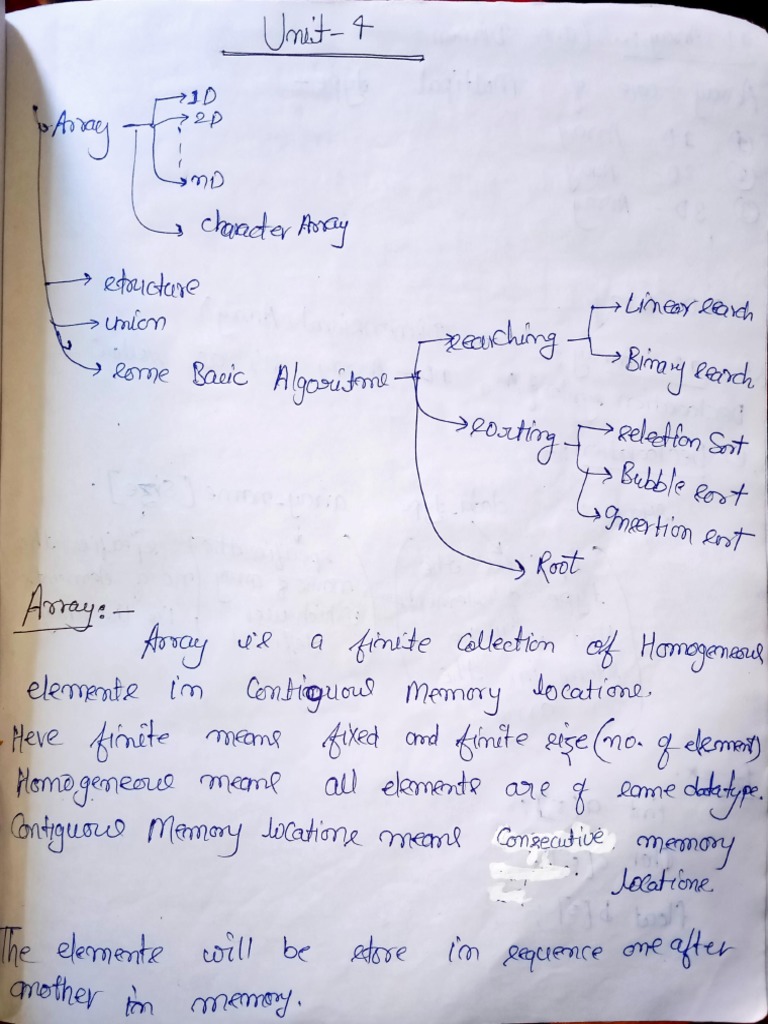 Unit-4
Array
1D
2D
nD
character Array
structure
union
some Basic Algorithms
searching
Linear search
Binary search
sorting
selection Sort
Bubble sort
Insertion sort
Root
Array:-
Array is a finite collection of Homogeneous
elements in Contiguous Memory locations.
Here finite means fixed and finite size (no. of element)
Homogeneous means all elements are of same datatype.
Contiguous Memory locations means Consecutive memory
locations
The elements will be store in sequence one after
another in memory.